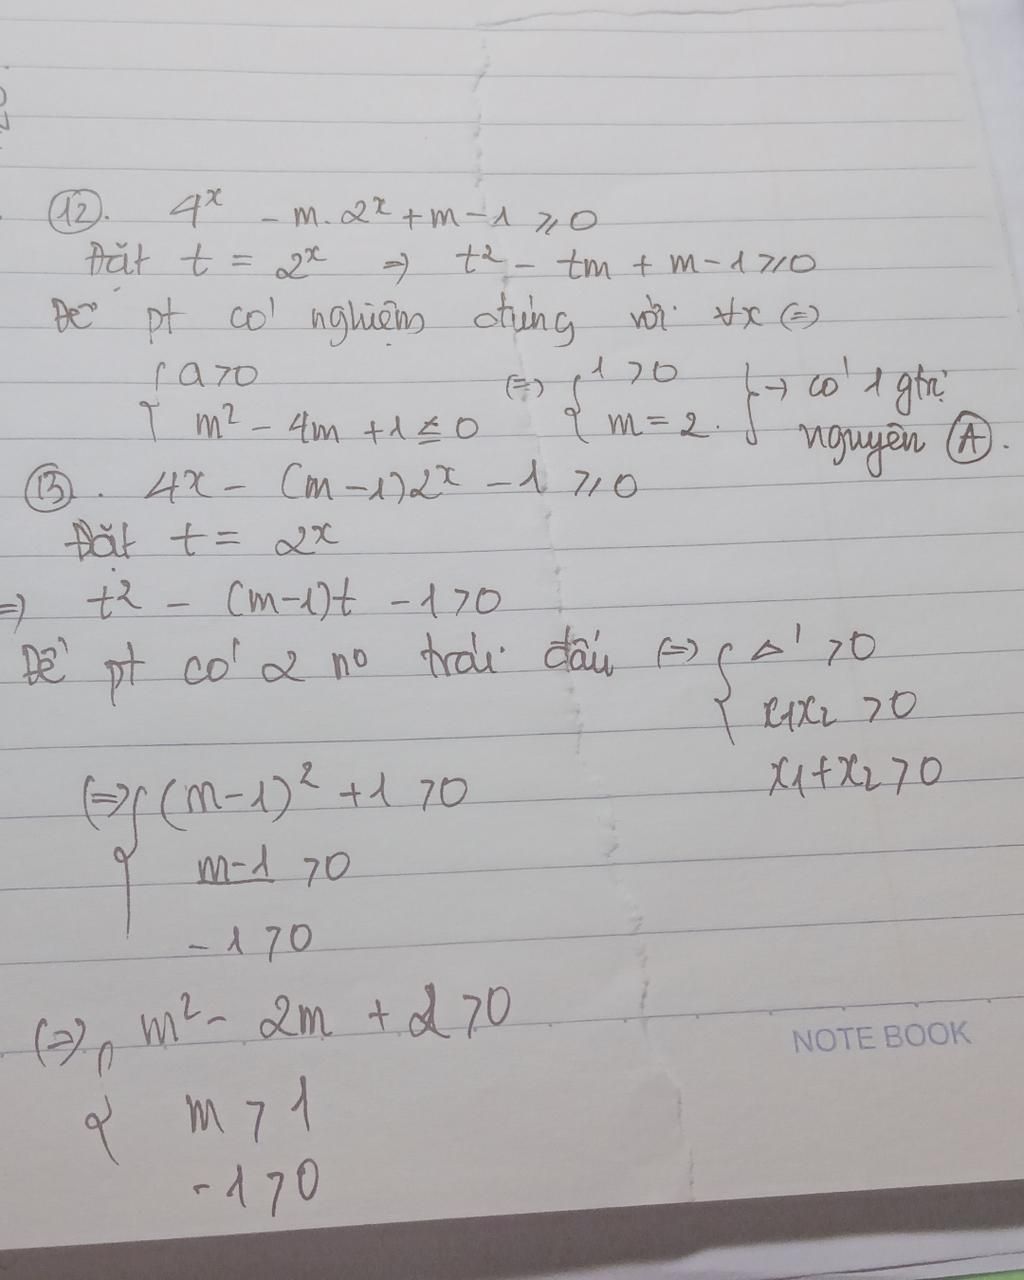 ⑫. 4ˣ - m.2ˣ + m - 1 ⩾ 0
Đặt t = 2ˣ => t² - tm + m - 1 ⩾ 0
Để pt có nghiệm đúng với ∀x (=)
{ a > 0 (=) { 1 > 0 } → có 1 gtrị
m² - 4m + 1 ≤ 0 m = 2. nguyên Ⓐ.
⑬. 4x - (m-1)2ˣ - 1 ⩾ 0
Đặt t = 2ˣ
=> t² - (m-1)t - 1 > 0
Để pt có 2 no trái dấu (=) { Δ' > 0
x1x2 > 0
x1+x2 > 0
(=> { (m-1)² + 1 > 0
m-1 > 0
-1 > 0
(=> { m² - 2m + 2 > 0
m > 1
-1 > 0
NOTE BOOK